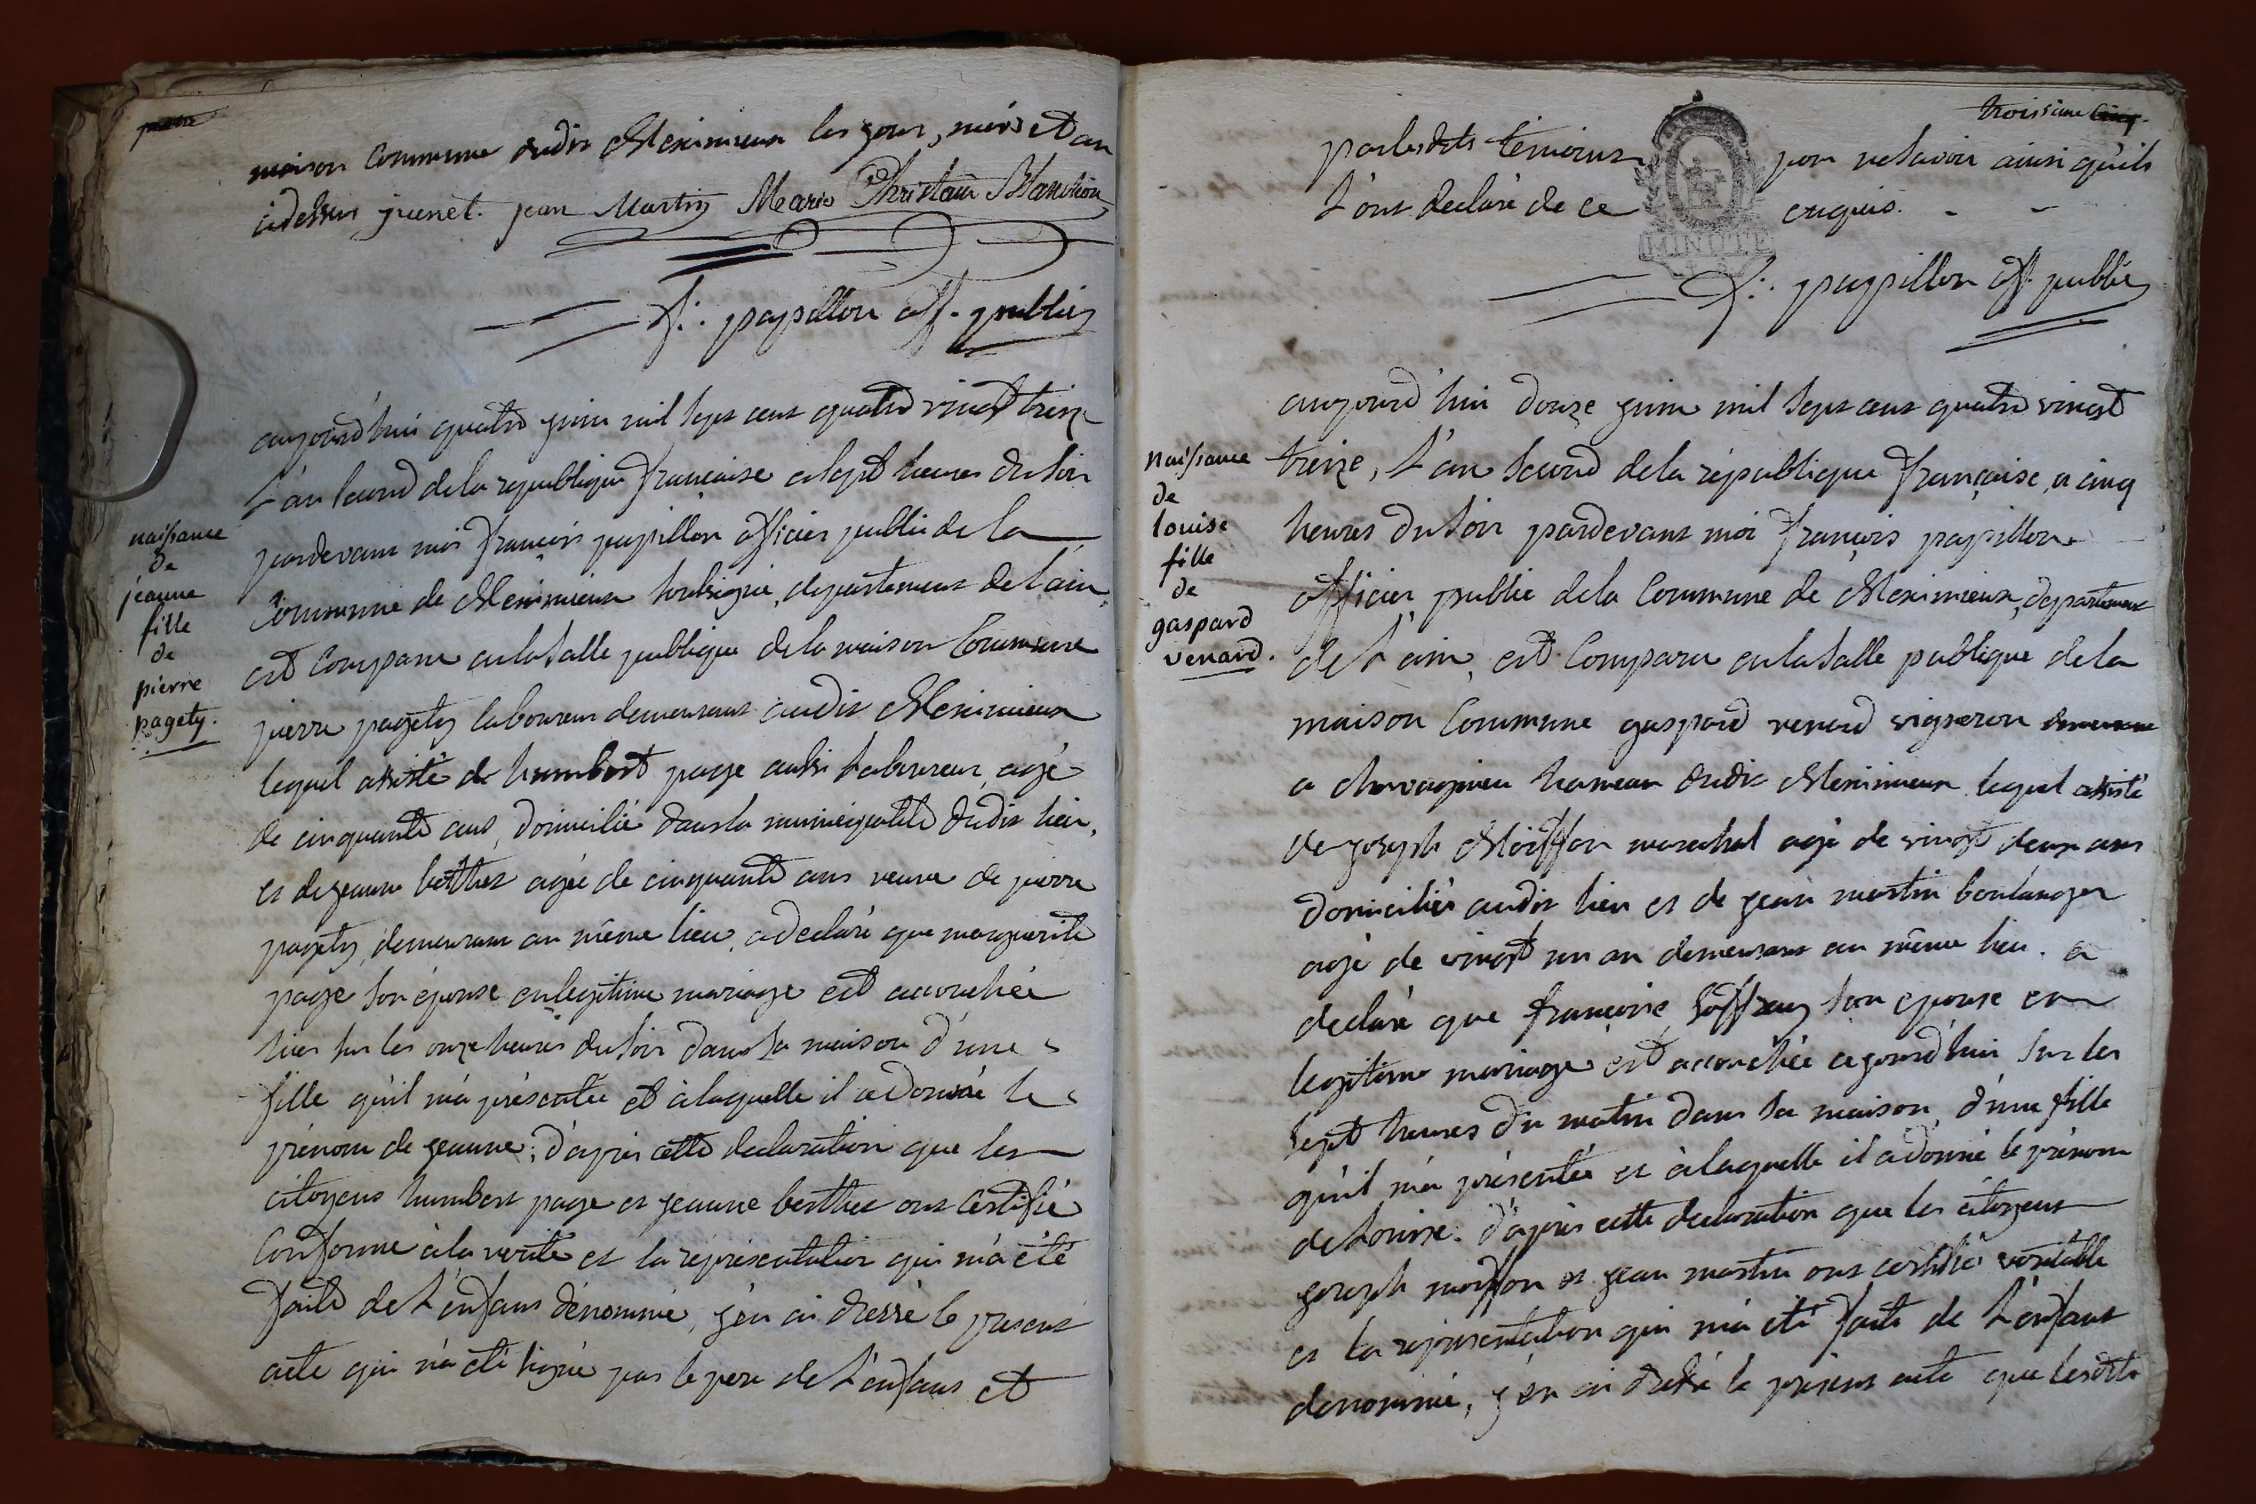 maison Commune dudit Meximieux les jour, mois et an
cidessus junet. jean Martin Marie Christain Blanchon
f. papillon off. public
naissance
de
jeanne
fille
de
pierre
pagety.
aujourd'hui quatre juin mil sept cent quatre vingt treize
l'an second de la republique francaise a sept heures du soir
pardevant moi françois papillon officier public de la
Commune de Meximieux soussigné, departement de l'ain,
est comparu en la salle publique de la maison Commune
pierre pagety laboureur demeurant audit Meximieux
lequel assisté de humbert page aussi laboureur agé
de cinquante ans, domicilié dans la municipalité dudit lieu,
et de jeanne berthet agée de cinquante ans veuve de pierre
pagety, demeurant au même lieu, a declaré que marguerite
page son épouse en legitime mariage est accouchée
hier sur les onze heures du soir dans sa maison d'une
fille qu'il m'a présentée et à laquelle il a donné le
prénom de jeanne; d'après cette declaration que les
citoyens humbert page et jeanne berthet ont certifié
Conforme à la verité et la représentation qui m'a été
faite de l'enfant dénommé, j'en ai dressé le présent
acte qui n'a été signé par le pere de l'enfant et
troisieme
par lesdits témoins pour ne savoir ainsi qu'ils
l'ont declaré de ce enquis.
MINUTE
f. papillon off. public
naissance
de
louise
fille
de
gaspard
venard.
aujourd'hui douze juin mil sept cent quatre vingt
treize, l'an second de la république française, a cinq
heures du soir pardevant moi françois papillon
officier public de la Commune de Meximieux, departement
de l'ain, est Comparu en la salle publique de la
maison Commune gaspard venard vigneron
a chavagnieu hameau dudit Meximieux lequel assisté
de joseph Moiffon marechal agé de vingt deux ans
domicilié audit lieu et de jean martin boulanger
agé de vingt un an demeurant au même lieu. a
declaré que françoise son epouse en
legitime mariage est accouchée cejourd'hui sur les
sept heures du matin dans sa maison, d'une fille
qu'il m'a présentée et à laquelle il a donné le prénom
de Louise. d'après cette declaration que les citoyens
joseph moiffon et jean martin ont certifié veritable
et la representation qui m'a été faite de l'enfant
denommé, j'en ai dressé le présent acte que lesdits